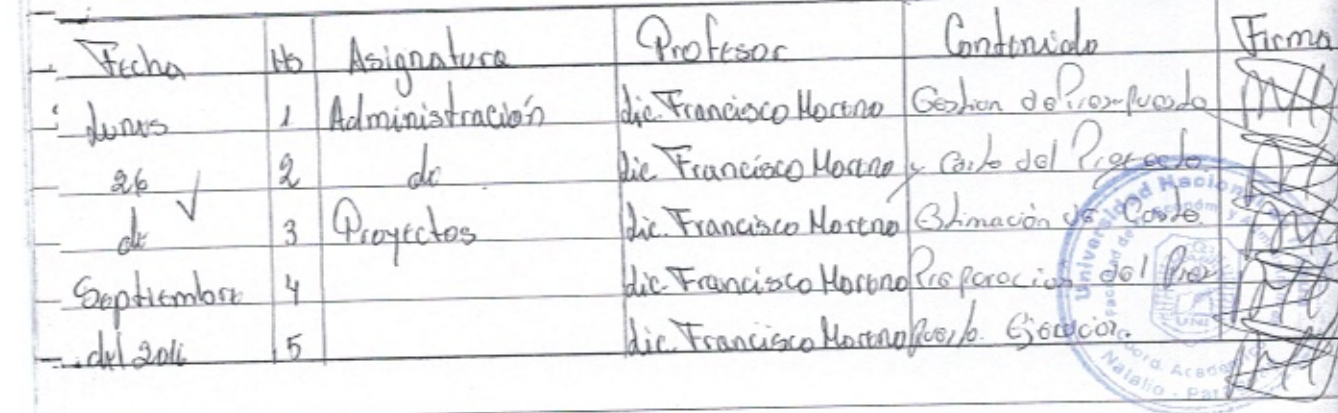 Fecha Hs Asignatura Profesor Contenido Firma
Lunes 1 Administración Lic. Francisco Moreno Gestion de Presupuesto
26 2 de Lic. Francisco Moreno y Costo del Proyecto.
de 3 Proyectos Lic. Francisco Moreno Estimación de Costo.
Septiembre 4 Lic. Francisco Moreno Preparacion del Pres
del 2016 5 Lic. Francisco Moreno puesto. Ejecucion.
Universidad Nacional
Facultad de
UNI
Coord. Academica
Natalio - Par